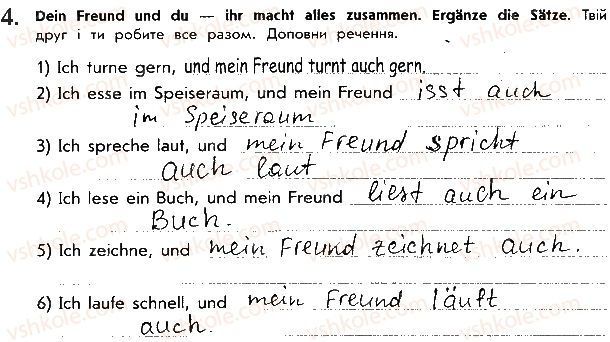 4. Dein Freund und du — ihr macht alles zusammen. Ergänze die Sätze. Твій
друг і ти робите все разом. Доповни речення.
1) Ich turne gern, und mein Freund turnt auch gern.
2) Ich esse im Speiseraum, und mein Freund isst auch
im Speiseraum
3) Ich spreche laut, und mein Freund spricht
auch laut
4) Ich lese ein Buch, und mein Freund liest auch ein
Buch.
5) Ich zeichne, und mein Freund zeichnet auch.
6) Ich laufe schnell, und mein Freund läuft
auch.
vshkole.com